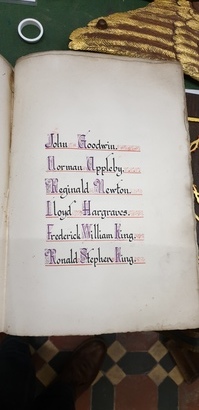 John Goodwin.
Norman Appleby.
Reginald Newton.
Lloyd Hargraves.
Frederick William King.
Ronald Stephen King.